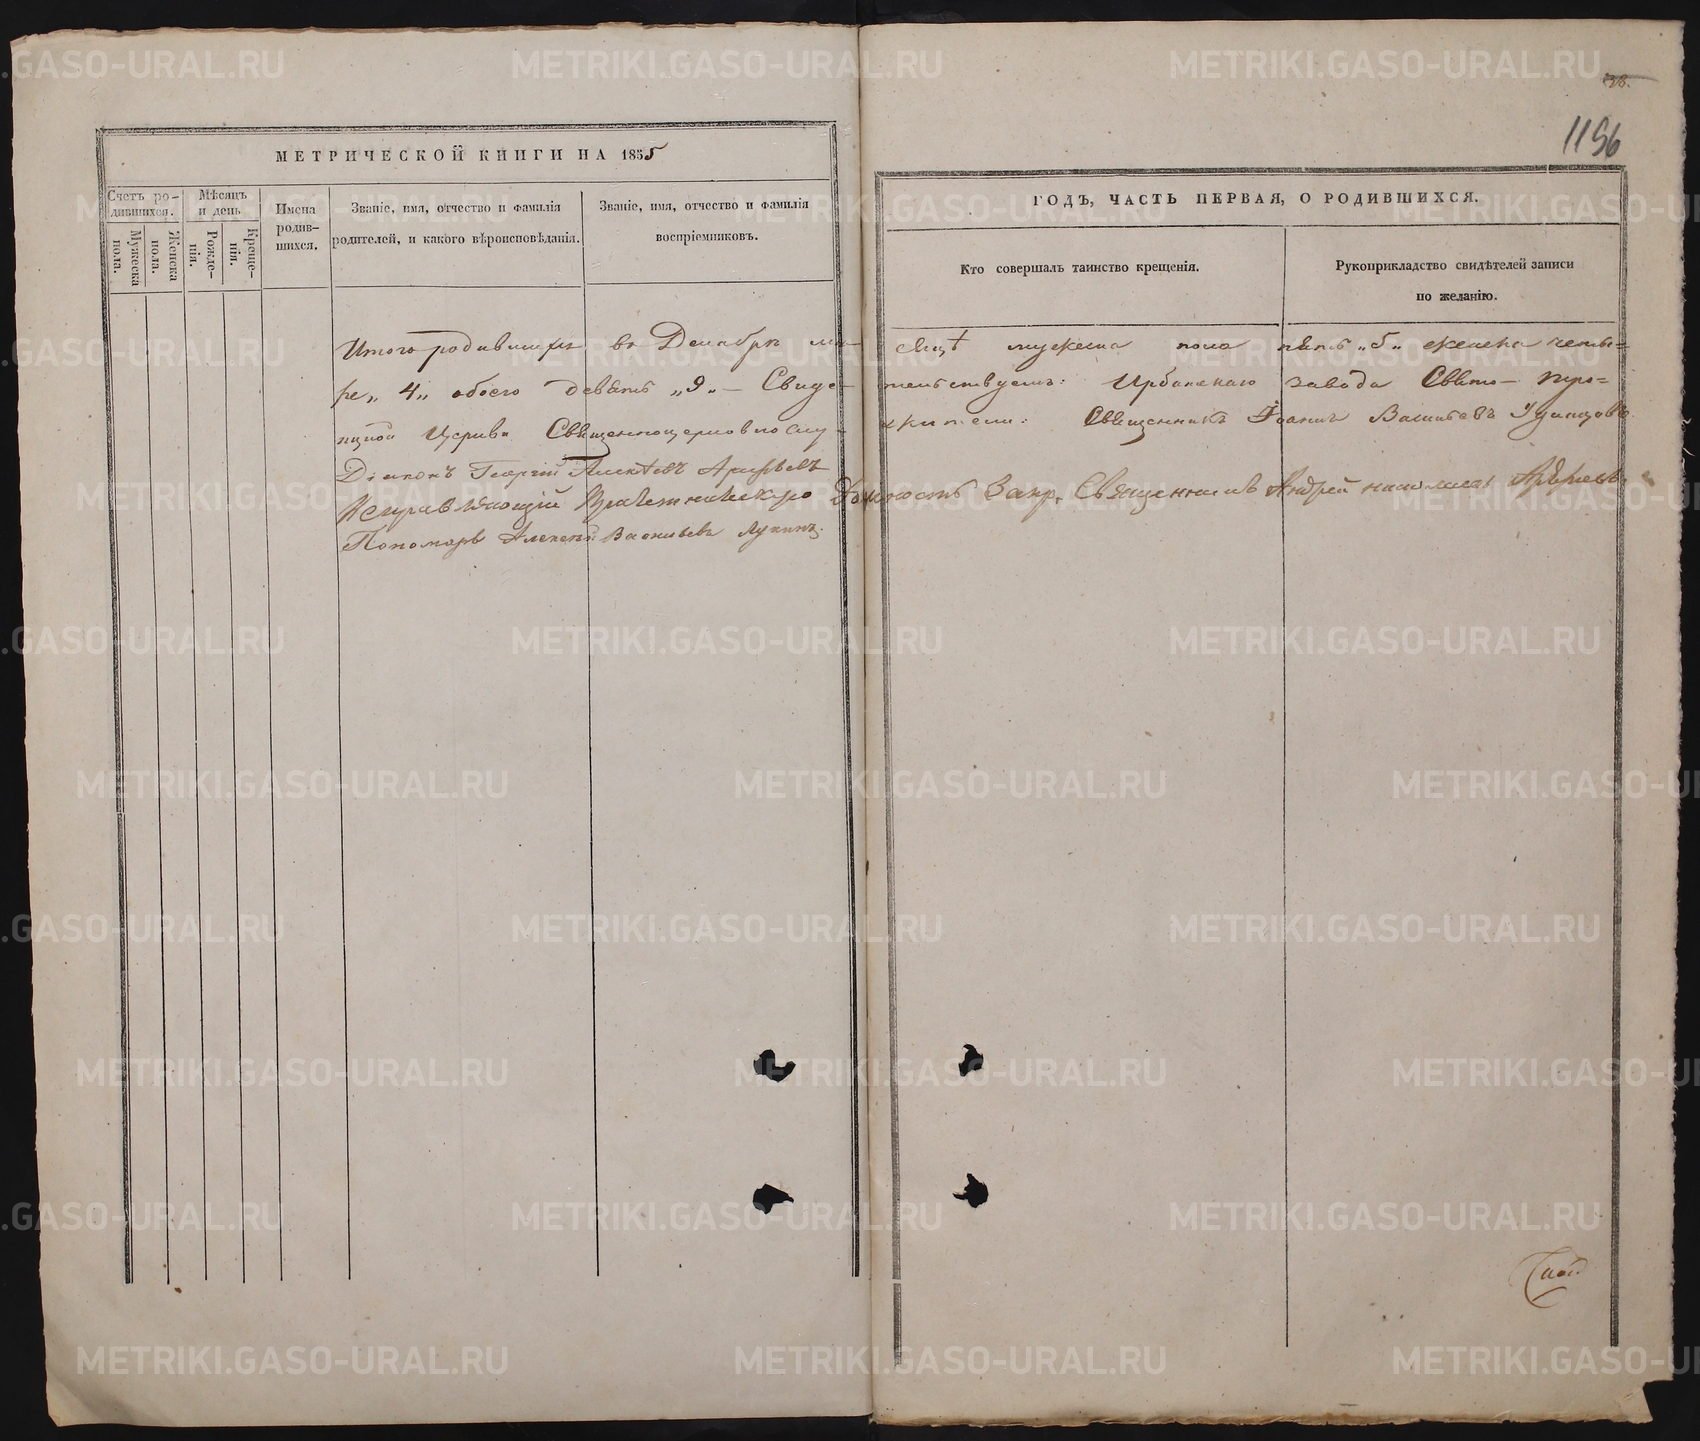 28.
1156
МЕТРИЧЕСКОЙ КНИГИ НА 1855
ГОДЪ, ЧАСТЬ ПЕРВАЯ, О РОДИВШИХСЯ.
Счетъ ро-
дившихся.
Мужеска
пола.
Женска
пола.
Мѣсяцъ
и день
Рожде-
нія.
Креще-
нія.
Имена
родив-
шихся.
Званіе, имя, отчество и фамилія
родителей, и какого вѣроисповѣданія.
Званіе, имя, отчество и фамилія
воспріемниковъ.
Кто совершалъ таинство крещенія.
Рукоприкладство свидѣтелей записи
по желанію.
Итого родившихся въ Декабрѣ мѣ- сяцѣ мужеска пола пять „5„ женска четы=
ре„ 4„ обоего девять „9„ — Свидѣ- тельствуемъ: Ирбинскаго завода Свято — Трои=
цкой Церкви Священноцерковнослу- жители: Священникъ Іоаннъ Васильевъ Удинцовъ
Діаконъ Георгій Алексѣевъ
Исправляющій Причетническую Должность Запр. Священникъ Андрей
Пономарь Алексѣй Васильевъ Лукинъ
METRIKI.GASO-URAL.RU